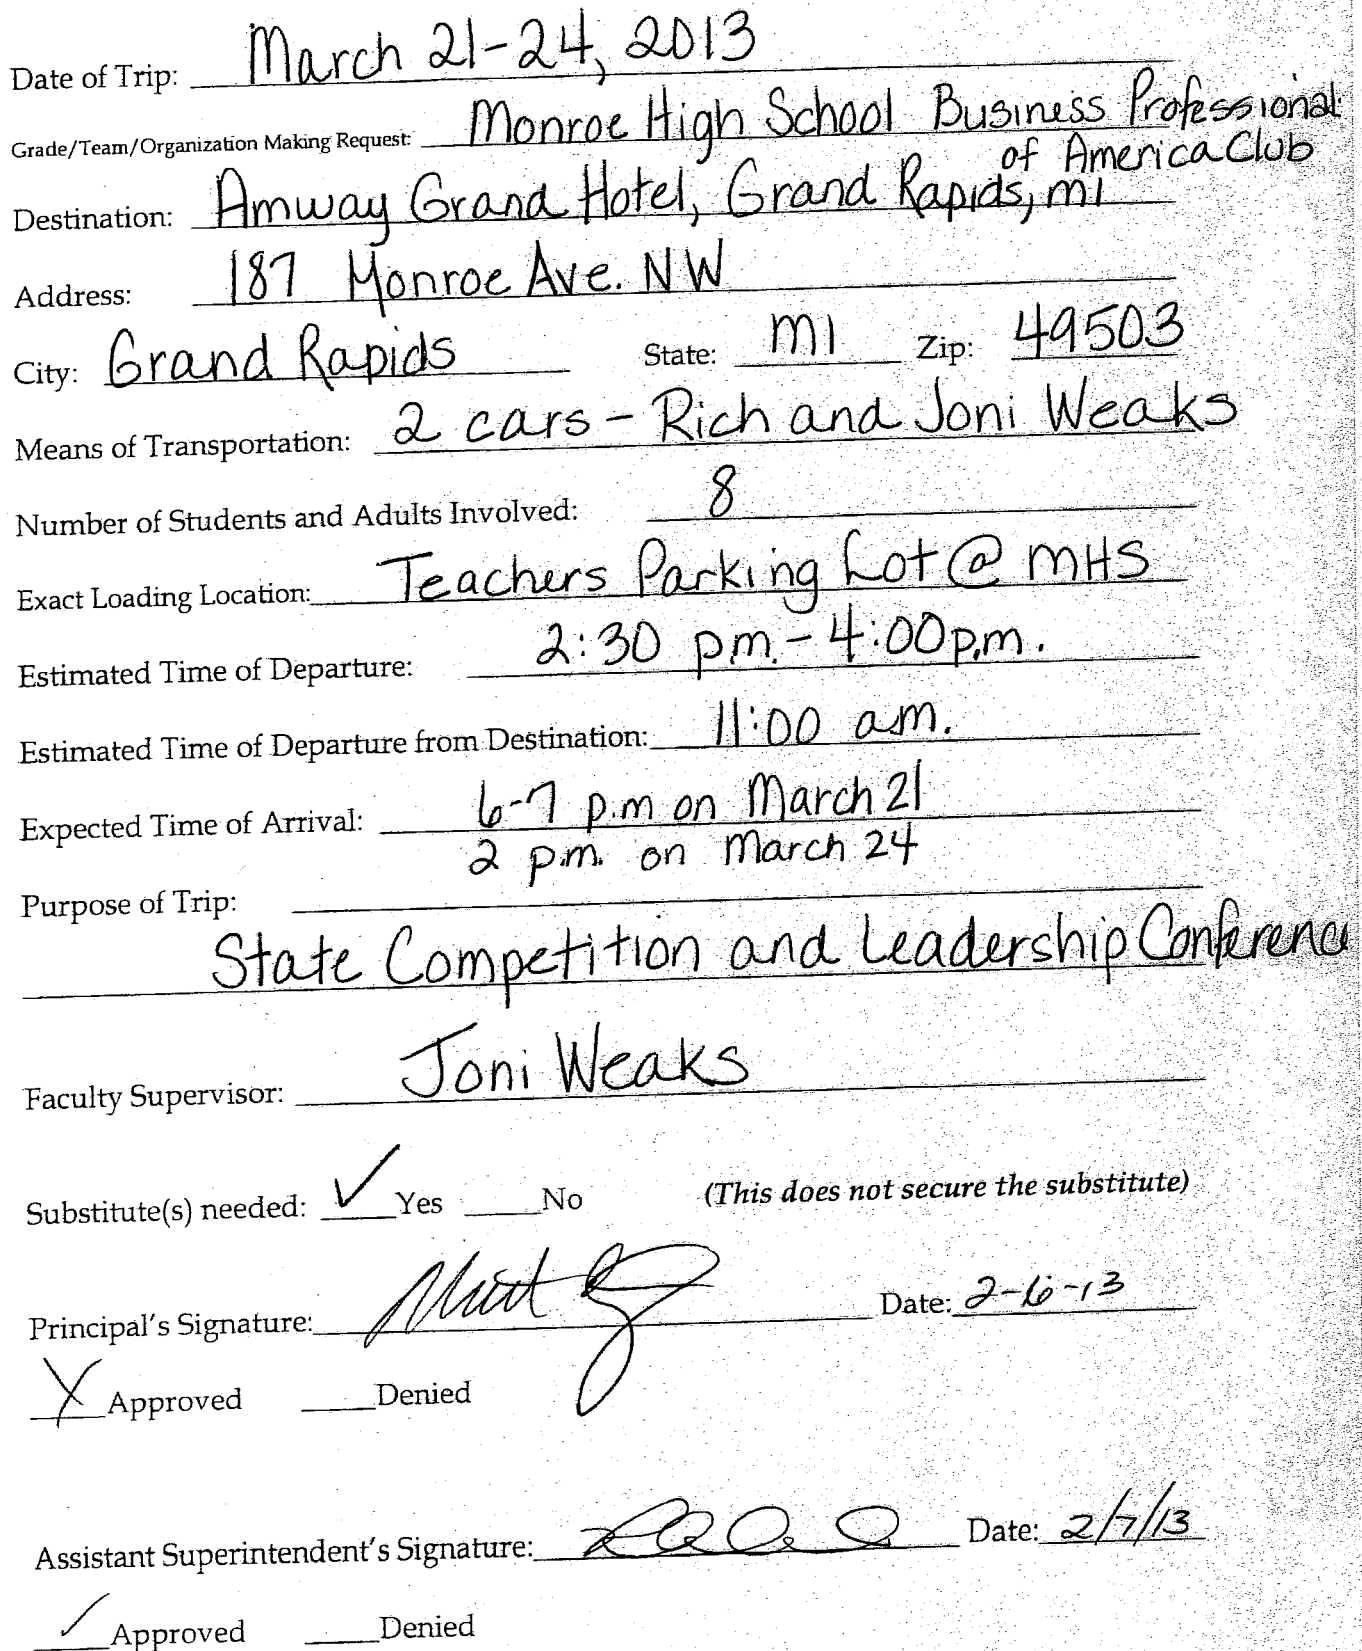 Date of Trip: March 21-24, 2013
Grade/Team/Organization Making Request: Monroe High School Business Professional
of America Club
Destination: Amway Grand Hotel, Grand Rapids, MI
Address: 187 Monroe Ave. NW
City: Grand Rapids State: MI Zip: 49503
Means of Transportation: 2 cars - Rich and Joni Weaks
Number of Students and Adults Involved: 8
Exact Loading Location: Teachers Parking Lot @ MHS
Estimated Time of Departure: 2:30 p.m. - 4:00 p.m.
Estimated Time of Departure from Destination: 11:00 a.m.
Expected Time of Arrival: 6-7 p.m on March 21
2 p.m. on March 24
Purpose of Trip:
State Competition and Leadership Conference
Faculty Supervisor: Joni Weaks
Substitute(s) needed: ✓ Yes ____No (This does not secure the substitute)
Principal's Signature: Date: 2-6-13
X Approved ____Denied
Assistant Superintendent's Signature: Date: 2/7/13
✓ Approved ____Denied